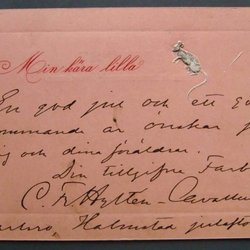 Min kära lilla
En god jul och ett g
ommande år önskar
ig och dina föräldrar.
Din tillgifne Farb
C. F. Hylten-Cavalli
Halmstad julaft